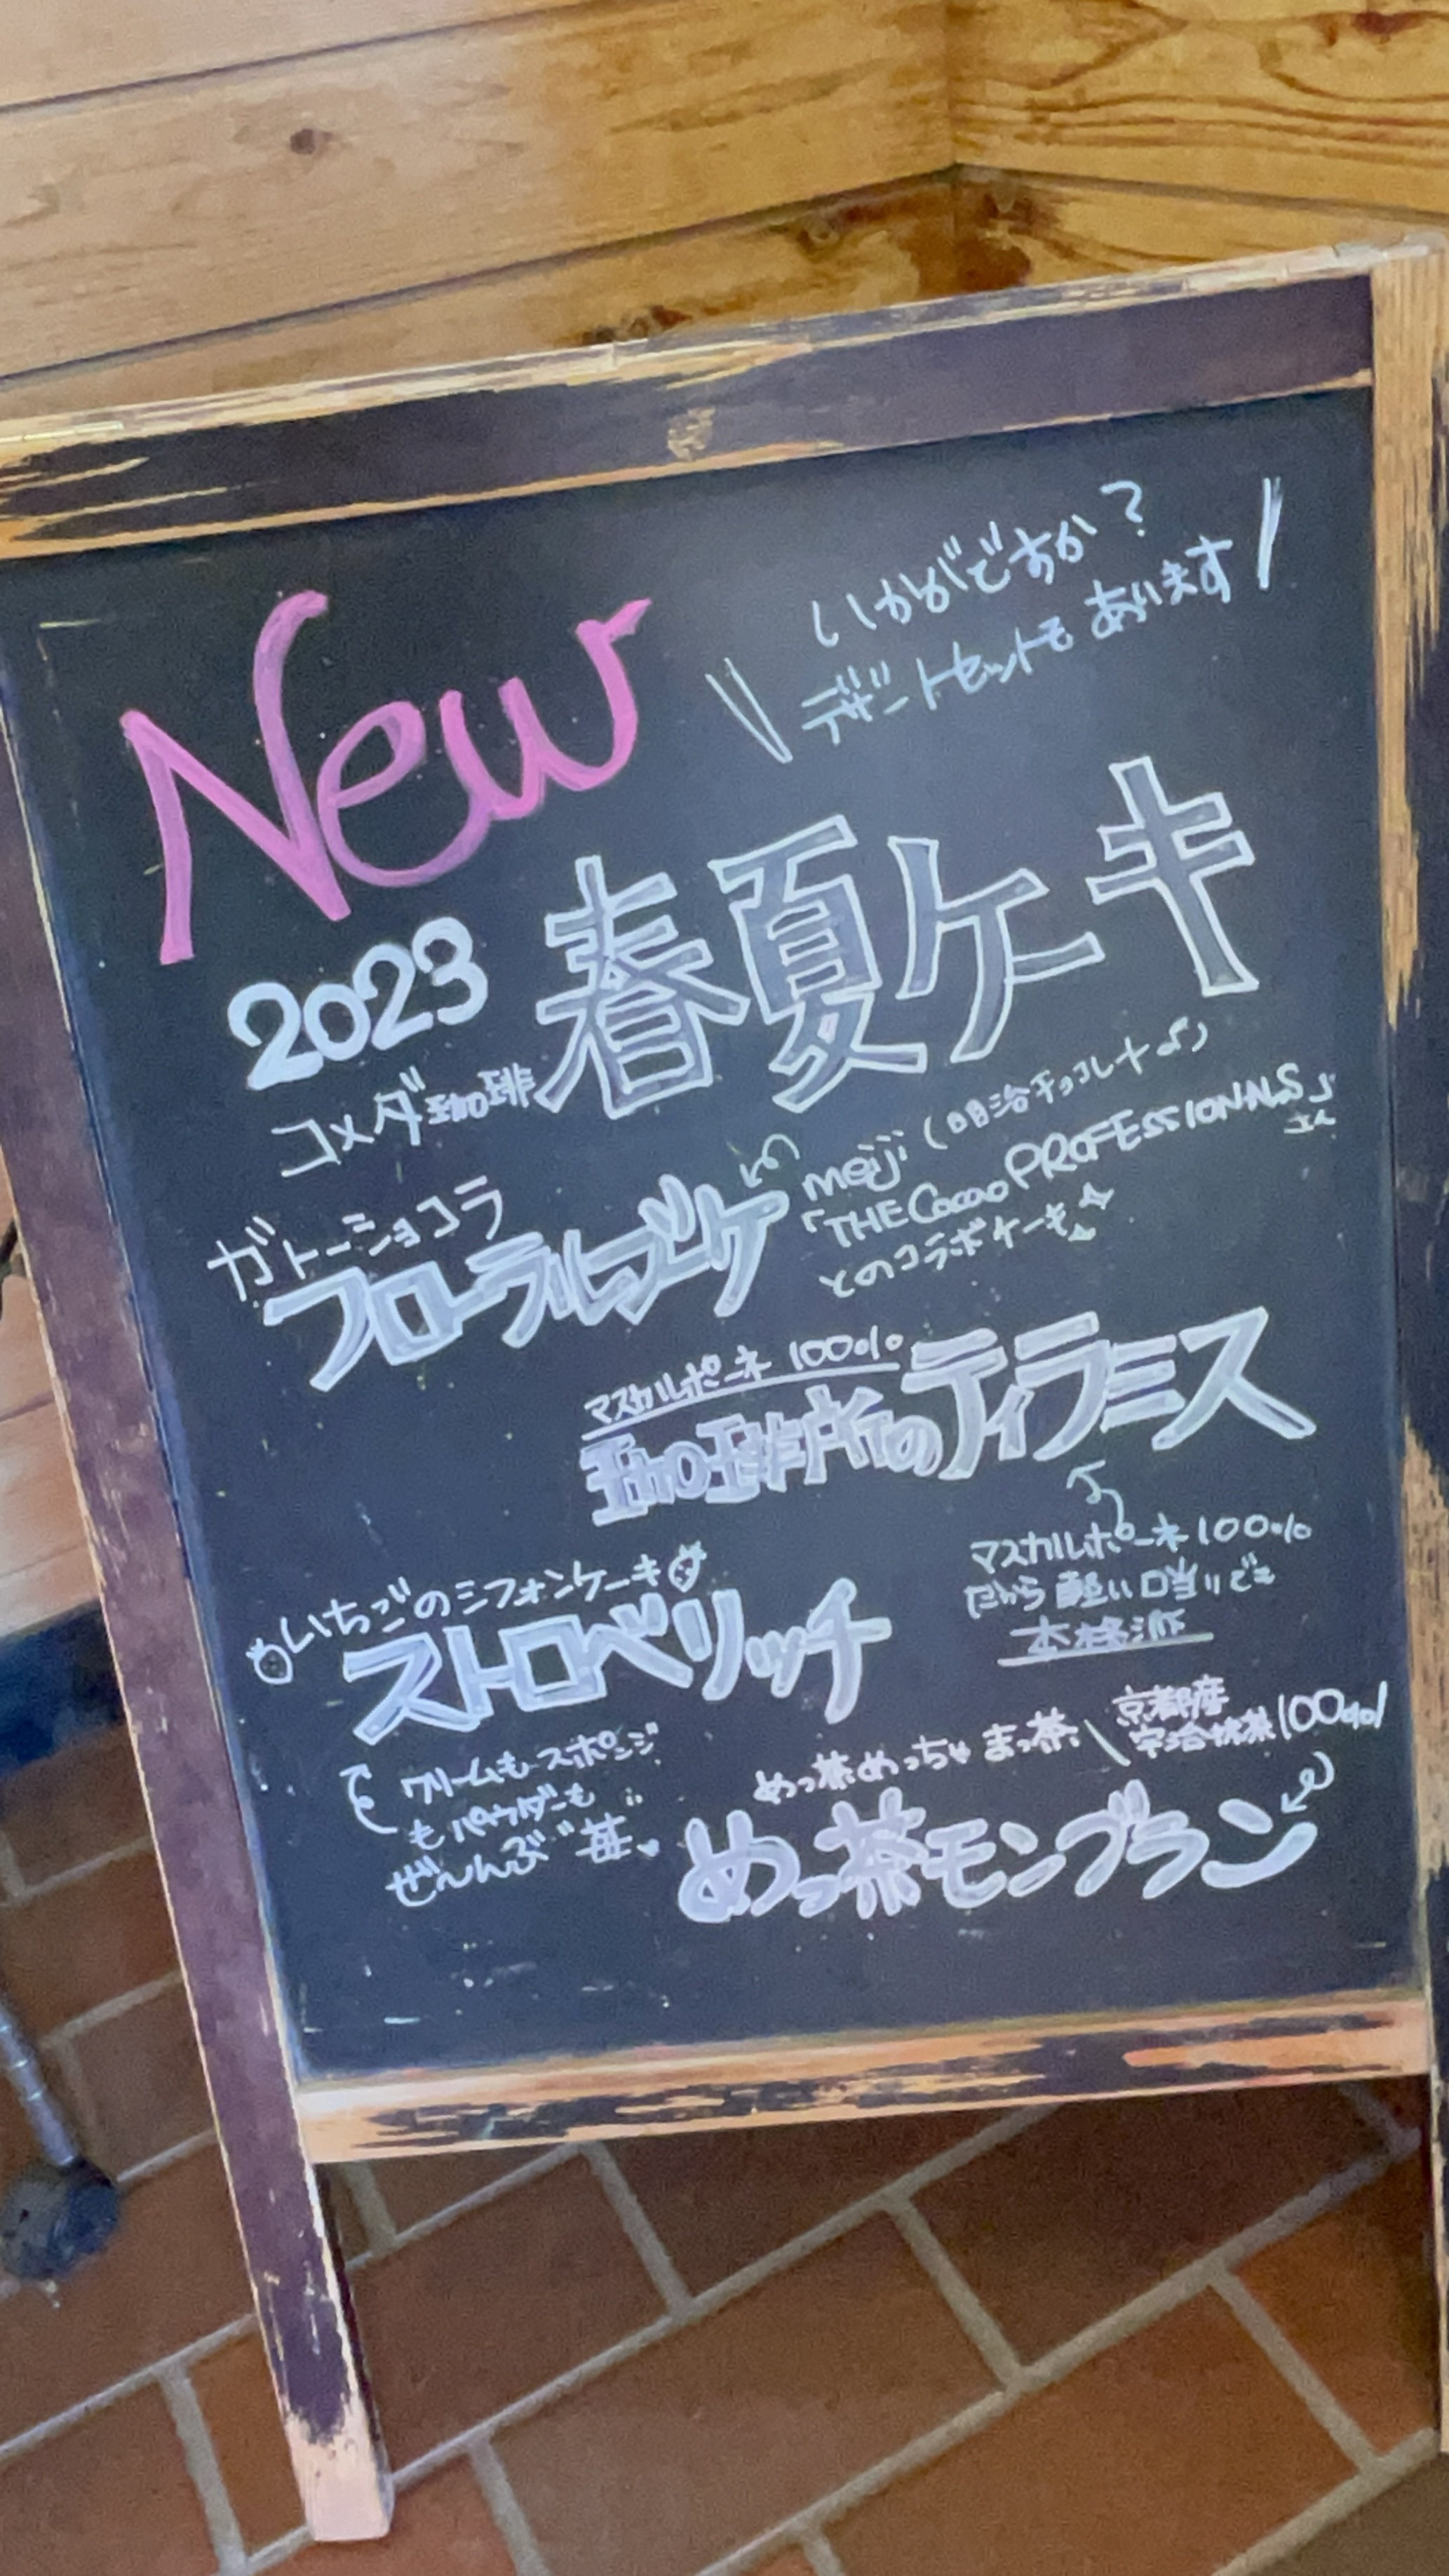 New
いかがですか？
デザートセットもあります
2023
春夏ケーキ
コメダ珈琲
ガトーショコラ
フローラルブーケ
meiji (明治チョコレート♪)
「THE Cacao PROFESSIONALS」
さん
とのコラボケーキ
マスカルポーネ 100%
珈琲所のティラミス
マスカルポーネ 100%
だから軽い口当りでも
本格派
いちごのシフォンケーキ
ストロベリッチ
クリームもスポンジ
もパウダーも
ぜーんぶ苺♥
めっ茶めっちゃまっ茶
京都産
宇治抹茶100%
めっ茶モンブラン